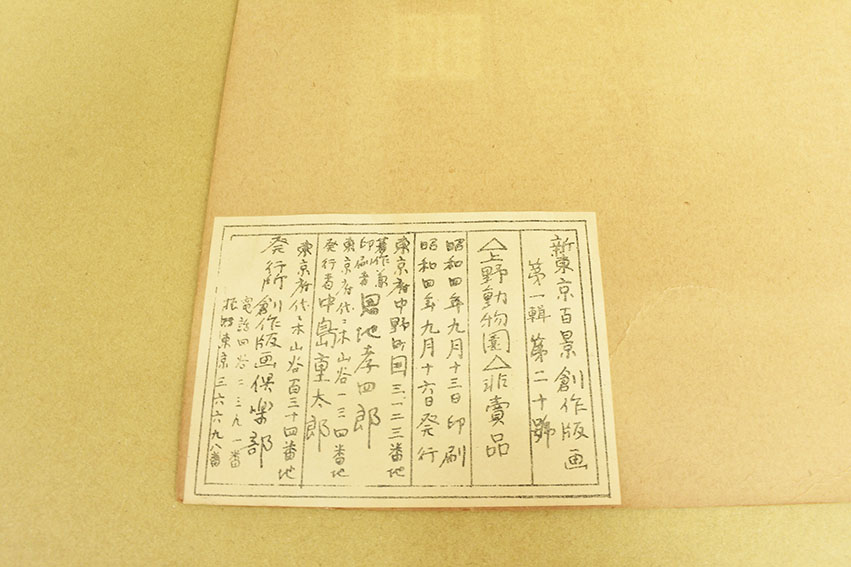 新東京百景創作版画
第一輯 第二十號
△上野動物園△非賣品
昭和四年九月十三日印刷
昭和四年九月十六日発行
東京府中野町囯三一二三番地
著作兼
印刷者 恩地孝四郎
東京府代々木山谷一三四番地
発行者 中島重太郎
東京府代々木山谷百三十四番地
発行所 創作版画倶楽部
電話四谷二三九一番
振替東京三六六九八番